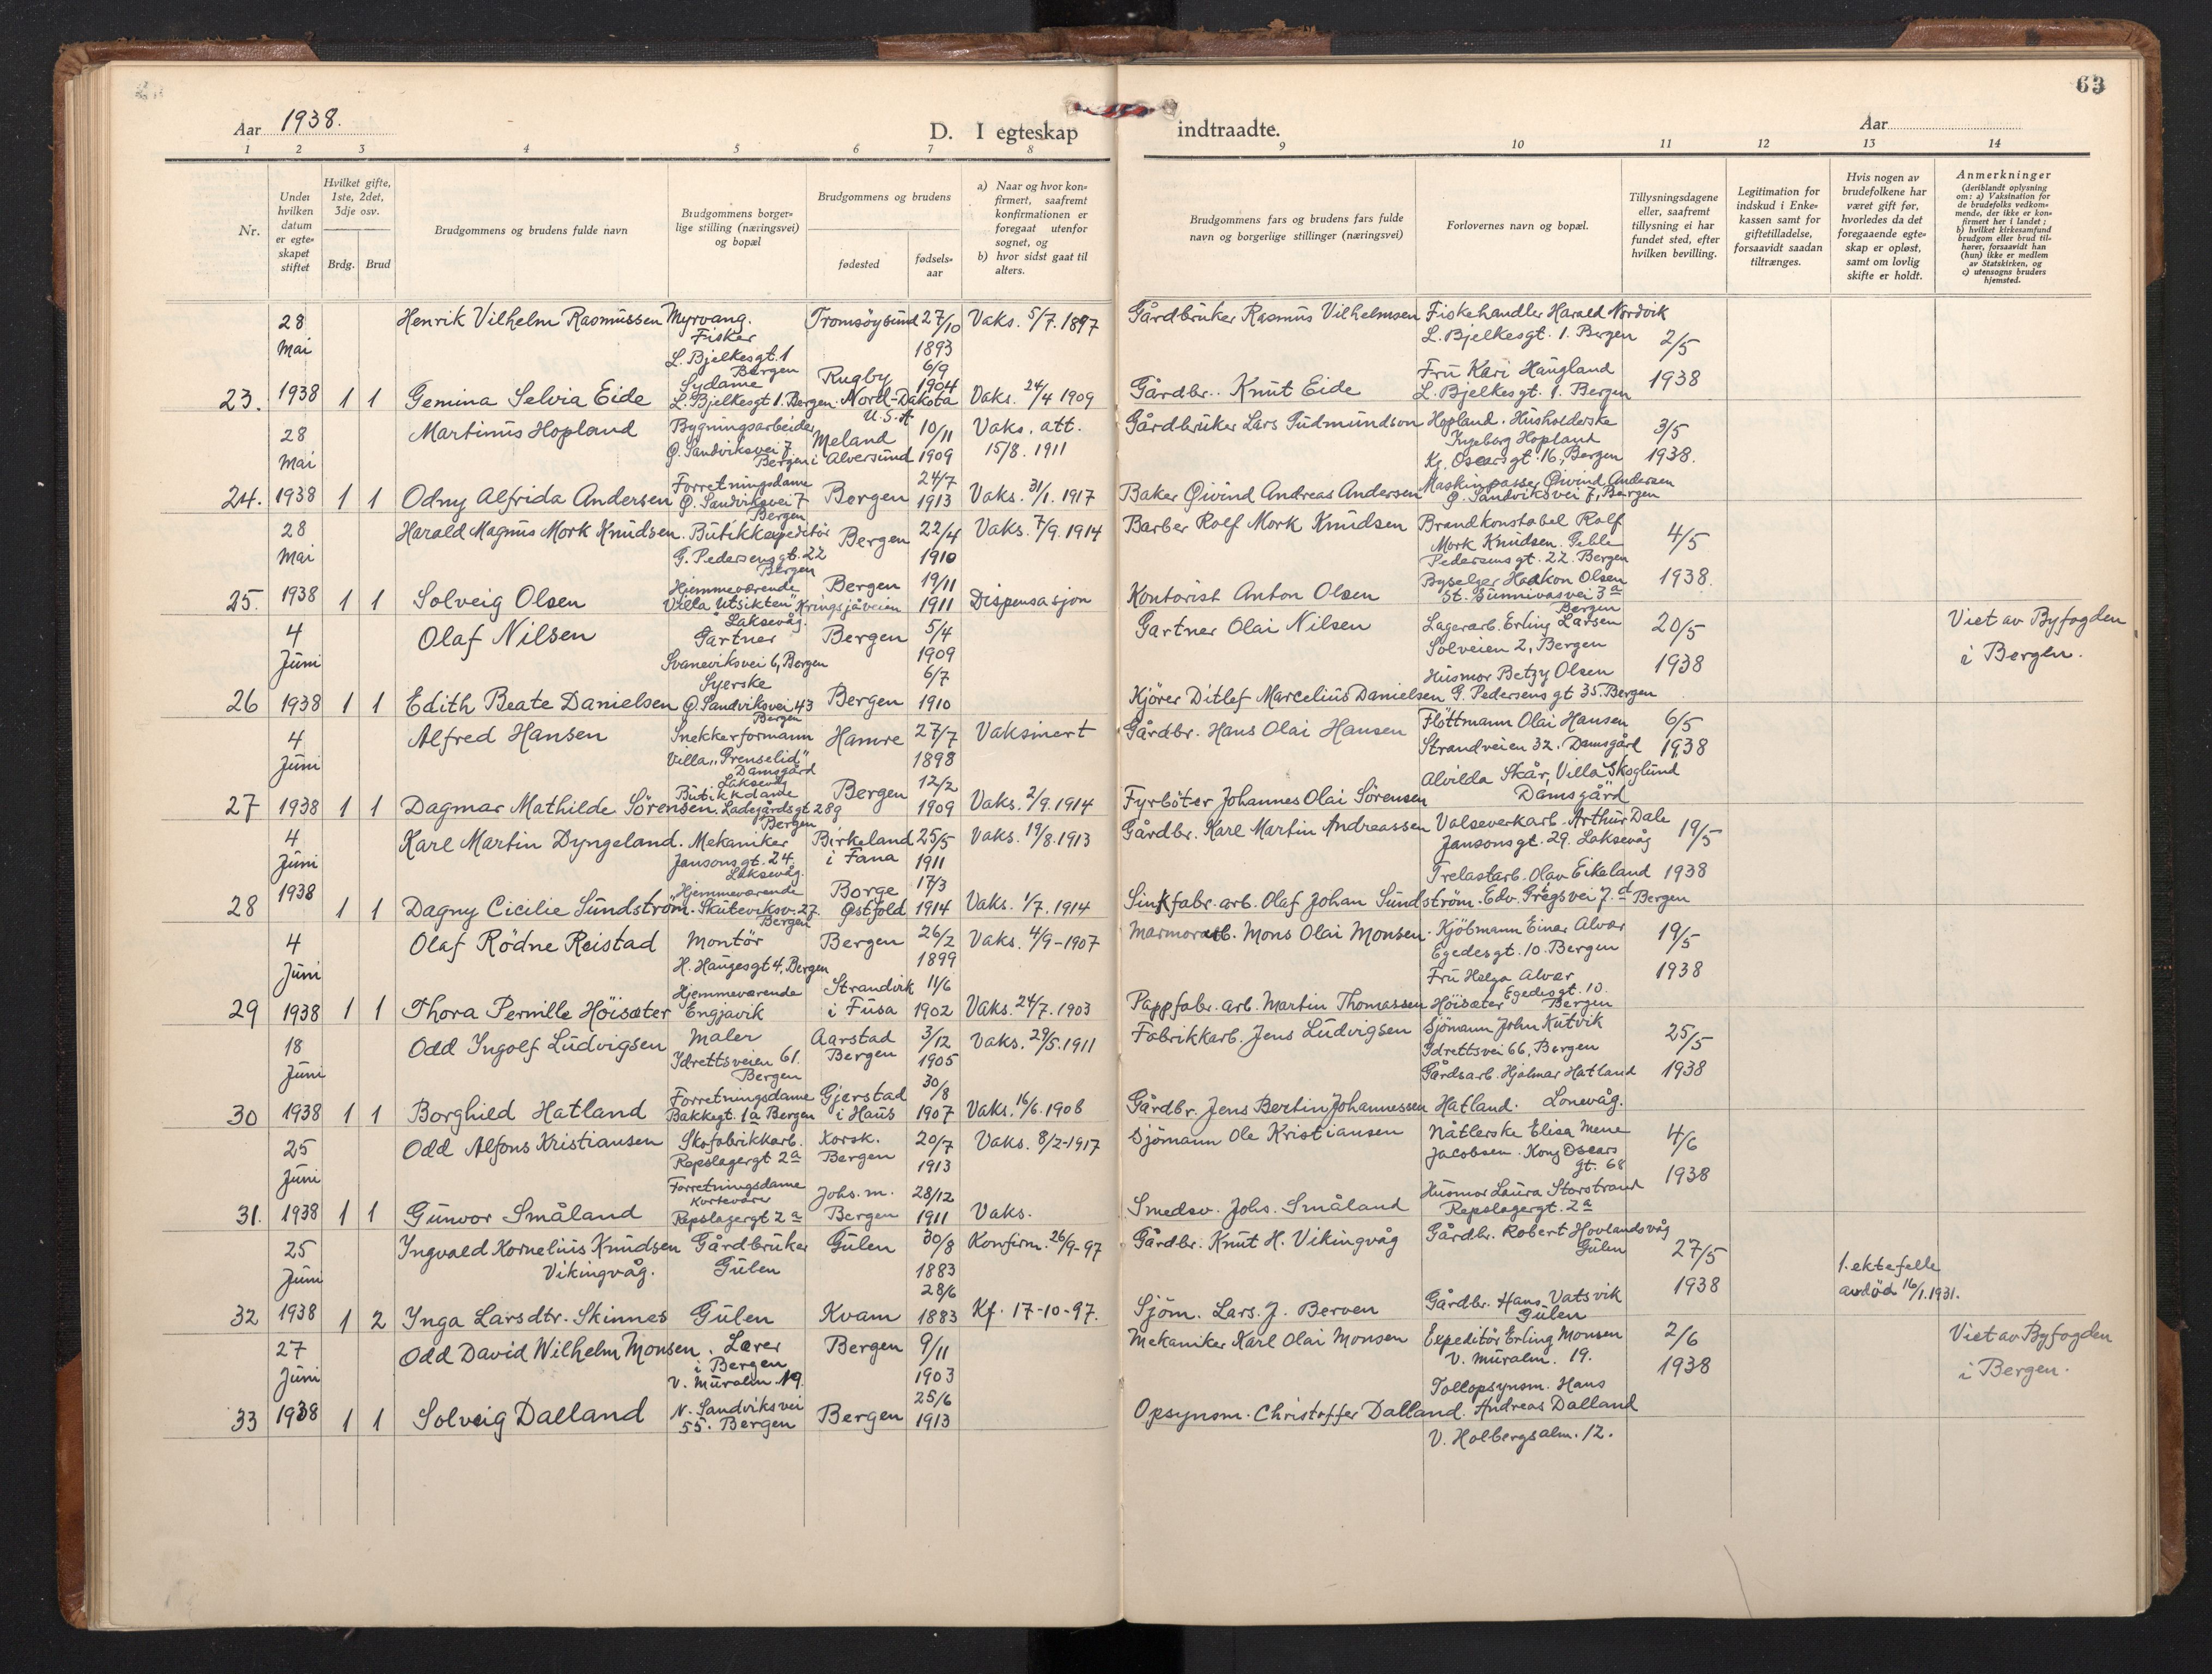 63
Aar 1938.
D. I egteskap indtraadte.
Aar
1 2 3 4 5 6 7 8 9 10 11 12 13 14
Nr.
Under hvilken datum er egte-skapet stiftet
Hvilket gifte, 1ste, 2det, 3dje osv.
Brdg. Brud
Brudgommens og brudens fulde navn
Brudgommens borger-lige stilling (næringsvei) og bopæl
Brudgommens og brudens
fødested
fødsels-aar
a) Naar og hvor kon-firmert, saafremt konfirmationen er foregaat utenfor sognet, og
b) hvor sidst gaat til alters.
Brudgommens fars og brudens fars fulde navn og borgerlige stillinger (næringsvei)
Forlovernes navn og bopæl.
Tillysningsdagene eller, saafremt tillysning ei har fundet sted, efter hvilken bevilling.
Legitimation for indskud i Enke-kassen samt for giftetilladelse, forsaavidt saadan tiltrænges.
Hvis nogen av brudefolkene har været gift før, hvorledes da det foregaaende egte-skap er opløst, samt om lovlig skifte er holdt.
Anmerkninger
(deriblandt oplysning om: a) Vaksination for de brudefolks vedkom-mende, der ikke er kon-firmert her i landet; b) hvilket kirkesamfund brudgom eller brud til-hører, forsaavidt han (hun) ikke er medlem av Statskirken, og c) utensogns bruders hjemsted.
28 Mai 1938
Henrik Vilhelm Rasmussen Myrvang.
Fisker
L. Bjelkesgt. 1
Bergen
Tromsöysund 27/10 1893
Vaks. 5/7. 1897
Gårdbruker Rasmus Vilhelmsen
Fiskehandler Harald Nordvik
L. Bjelkesgt. 1. Bergen
2/5 1938
23. 1 1 Gemina Selvia Eide
Sydame
L. Bjelkesgt 1. Bergen.
Rugby Nord-Dakota U.S.A
6/9 1904
Vaks. 24/4 1909
Gårdbr. Knut Eide
Fru Kari Haugland
L. Bjelkesgt. 1. Bergen
28 Mai 1938
Martinus Hopland
Bygningsarbeider
Ø. Sandviksvei 7
Bergen
Meland i Alversund
10/11 1909
Vaks. att. 15/8. 1911
Gårdbruker Lars Gudmundson Hopland.
Husholderske
Ingeborg Hopland
Kg. Oscarsgt. 16, Bergen
3/5 1938.
24. 1 1 Odny Alfrida Andersen
Forretningsdame
Ø. Sandviksvei 7
Bergen
Bergen
24/7 1913
Vaks. 31/1. 1917
Baker Øivind Andreas Andersen
Maskinpasser Øivind Andersen
Ø. Sandviksvei 7, Bergen
28 Mai 1938
Harald Magnus Mork Knudsen.
Butikkexpeditör
G. Pedersensgt. 22
Bergen
Bergen
22/4 1910
Vaks. 7/9. 1914
Barber Rolf Mork Knudsen
Brandkonstabel Rolf
Mork Knudsen. Geble
Pedersensgt. 22. Bergen
4/5 1938.
25. 1 1 Solveig Olsen
Hjemmeværende
Villa "Utsikten" Kringsjåveien
Laksevåg.
Bergen
19/11 1911
Dispensasjon
Kontorist Anton Olsen
Byselger Haakon Olsen
St. Sunnivasvei 3a
Bergen
4 Juni 1938
Olaf Nilsen
Gartner
Svaneviksvei 6, Bergen
Bergen
5/4 1909
Gartner Olai Nilsen
Lagerarb. Erling Larsen
Solveien 2, Bergen
20/5 1938
Viet av Byfogden
i Bergen.
26 1 1 Edith Beate Danielsen
Syerske
Ø. Sandviksvei 43
Bergen
Bergen
6/7 1910
Kjörer Ditlef Marcelius Danielsen
Husmor Betzy Olsen
G. Pedersens gt 35. Bergen
4 Juni 1938
Alfred Hansen
Snekkerformann
Villa "Grenselid"
Damsgård
Laksevåg
Hamre
27/7 1898
Vaksinert
Gårdbr. Hans Olai Hansen
Flöttmann Olai Hansen
Strandveien 32. Damsgård
6/5 1938
27 1 1 Dagmar Mathilde Sörensen.
Butikkdame
Ladegårdsgt 28g
Bergen
Bergen
12/2 1909
Vaks. 2/9. 1914
Fyrböter Johannes Olai Sörensen
Alvilda Skår, Villa "Skoglund"
Damsgård
4 Juni 1938
Karl Martin Dyngeland.
Mekaniker
Jansonsgt. 24
Laksevåg.
Birkeland i Fana
25/5 1911
Vaks. 19/8. 1913
Gårdbr. Karl Martin Andreassen
Valseverkarb. Arthur Dale
Jansonsgt. 29. Laksevåg
19/5 1938
28 1 1 Dagny Cicilie Sundström.
Hjemmeværende
Skuteviksv. 27.
Bergen
Borge Østfold
17/3 1914
Vaks. 1/7. 1914
Sinkfabr. arb. Olaf Johan Sundström.
Trelastarb. Olav Eikeland
Edv. Griegsvei 7.d Bergen
4 Juni 1938
Olaf Rödne Reistad
Montör
H. Haugesgt 4, Bergen
Bergen
26/2 1899
Vaks. 4/9-1907
Marmorarb. Mons Olai Monsen.
Kjöbmann Einar Alvær
Egedesgt. 10. Bergen
19/5 1938
29 1 1 Thora Pernille Höisæter
Hjemmeværende
Engjavik
Strandvik i Fusa
11/6 1902
Vaks. 24/7. 1903
Pappfabr. arb. Martin Thomassen Höisæter
Fru Helga Alvær
Egedesgt. 10.
Bergen
18 Juni 1938
Odd Ingolf Ludvigsen
Maler
Idrettsveien 61.
Bergen
Aarstad Bergen
3/12 1905
Vaks. 29/5. 1911
Fabrikkarb. Jens Ludvigsen
Sjömann John Kutvik
Idrettsvei 66, Bergen
25/5 1938
30 1 1 Borghild Hatland
Forretningsdame
Bakkegt. 1a Bergen
Gjerstad i Haus
30/8 1907
Vaks. 16/6. 1908
Gårdbr. Jens Bertin Johannessen Hatland.
Gårdsarb. Hjalmar Hatland
Lonevåg.
25 Juni 1938
Odd Alfons Kristiansen
Skofabrikkarb.
Repslagergt 2a
Korsk. Bergen
20/7 1913
Vaks. 8/2-1917
Sjömann Ole Kristiansen
Nåtlerske Elisa Mene
Jacobsen. Kong Oscars
gt. 68
4/6 1938
31. 1 1 Gunvor Småland
Forretningsdame
Kortevare
Repslagergt 2a
Johs. m. Bergen
28/12 1911
Vaks.
Smedsv. Johs. Småland
Husmor Laura Storstrand
Repslagergt. 2a
25 Juni 1938
Ingvald Kornelius Knudsen
Vikingvåg.
Gårdbruker
Gulen
Gulen
30/8 1883
Konfirm. 26/9-97
Gårdbr. Knut H. Vikingvåg
Gårdbr. Robert Hovlandsvåg
Gulen
27/5 1938
1. ektefelle
avdöd 16/1. 1931.
32 1 2 Inga Larsdtr. Skinnes
Gulen
Kvam
28/6 1883
Kf. 17-10-97.
Sjöm. Lars. J. Berven
Gårdbr. Hans Vatsvik
Gulen
27 Juni 1938
Odd David Wilhelm Monsen.
Lærer
i Bergen
V. Muralm. 19.
Bergen
9/11 1903
Mekaniker Karl Olai Monsen
Expeditör Erling Monsen
V. Muralm. 19.
2/6 1938
Viet av Byfogden
i Bergen.
33 1 1 Solveig Dalland
N. Sandviksvei
55. Bergen
Bergen
25/6 1913
Opsynsm. Christoffer Dalland.
Tollopsynsm. Hans
Andreas Dalland
V. Holbergsalm. 12.